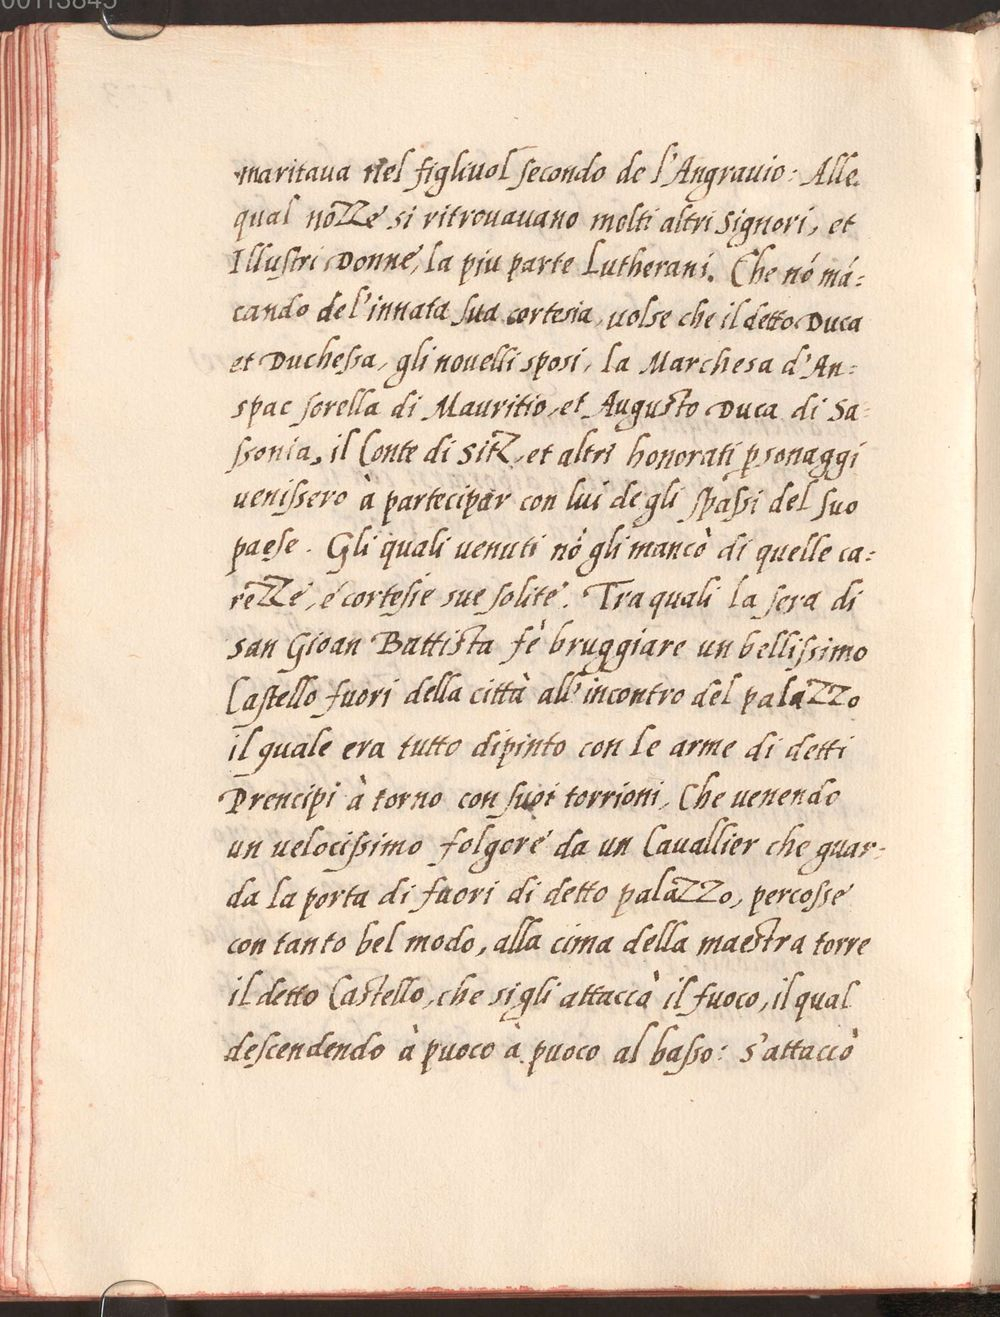 00113845
maritaua nel figliuol secondo de l'Angrauio: Alle
qual nozze si ritrouauano molti altri Signori, et
Illustri Donne, la piu parte Lutherani. Che nō mā=
cando de l'innata sua cortesia, uolse che il detto Duca
et Duchessa, gli nouelli sposi, la Marchesa d'An=
spac sorella di Mauritio, et Augusto Duca di Sa=
ssonia, il Conte di Sitz, et altri honorati p̱sonaggi
uenissero à partecipar con lui de gli spassi del suo
paese. Gli quali uenuti nō gli mancò di quelle ca=
rezze, é cortesie sue solite. Tra quali la sera di
san Gioan Battista fè bruggiare un bellissimo
Castello fuori della città all'incontro del palazzo
il quale era tutto dipinto con le arme di detti
Prencipi à torno con suoi torrioni, Che uenendo
un uelocissimo folgore da un Cauallier che guar=
da la porta di fuori di detto palazzo, percosse
con tanto bel modo, alla cima della maestra torre
il detto Castello, che si gli attaccà il fuoco, il qual
descendendo à puoco à puoco al basso: s'attaccò